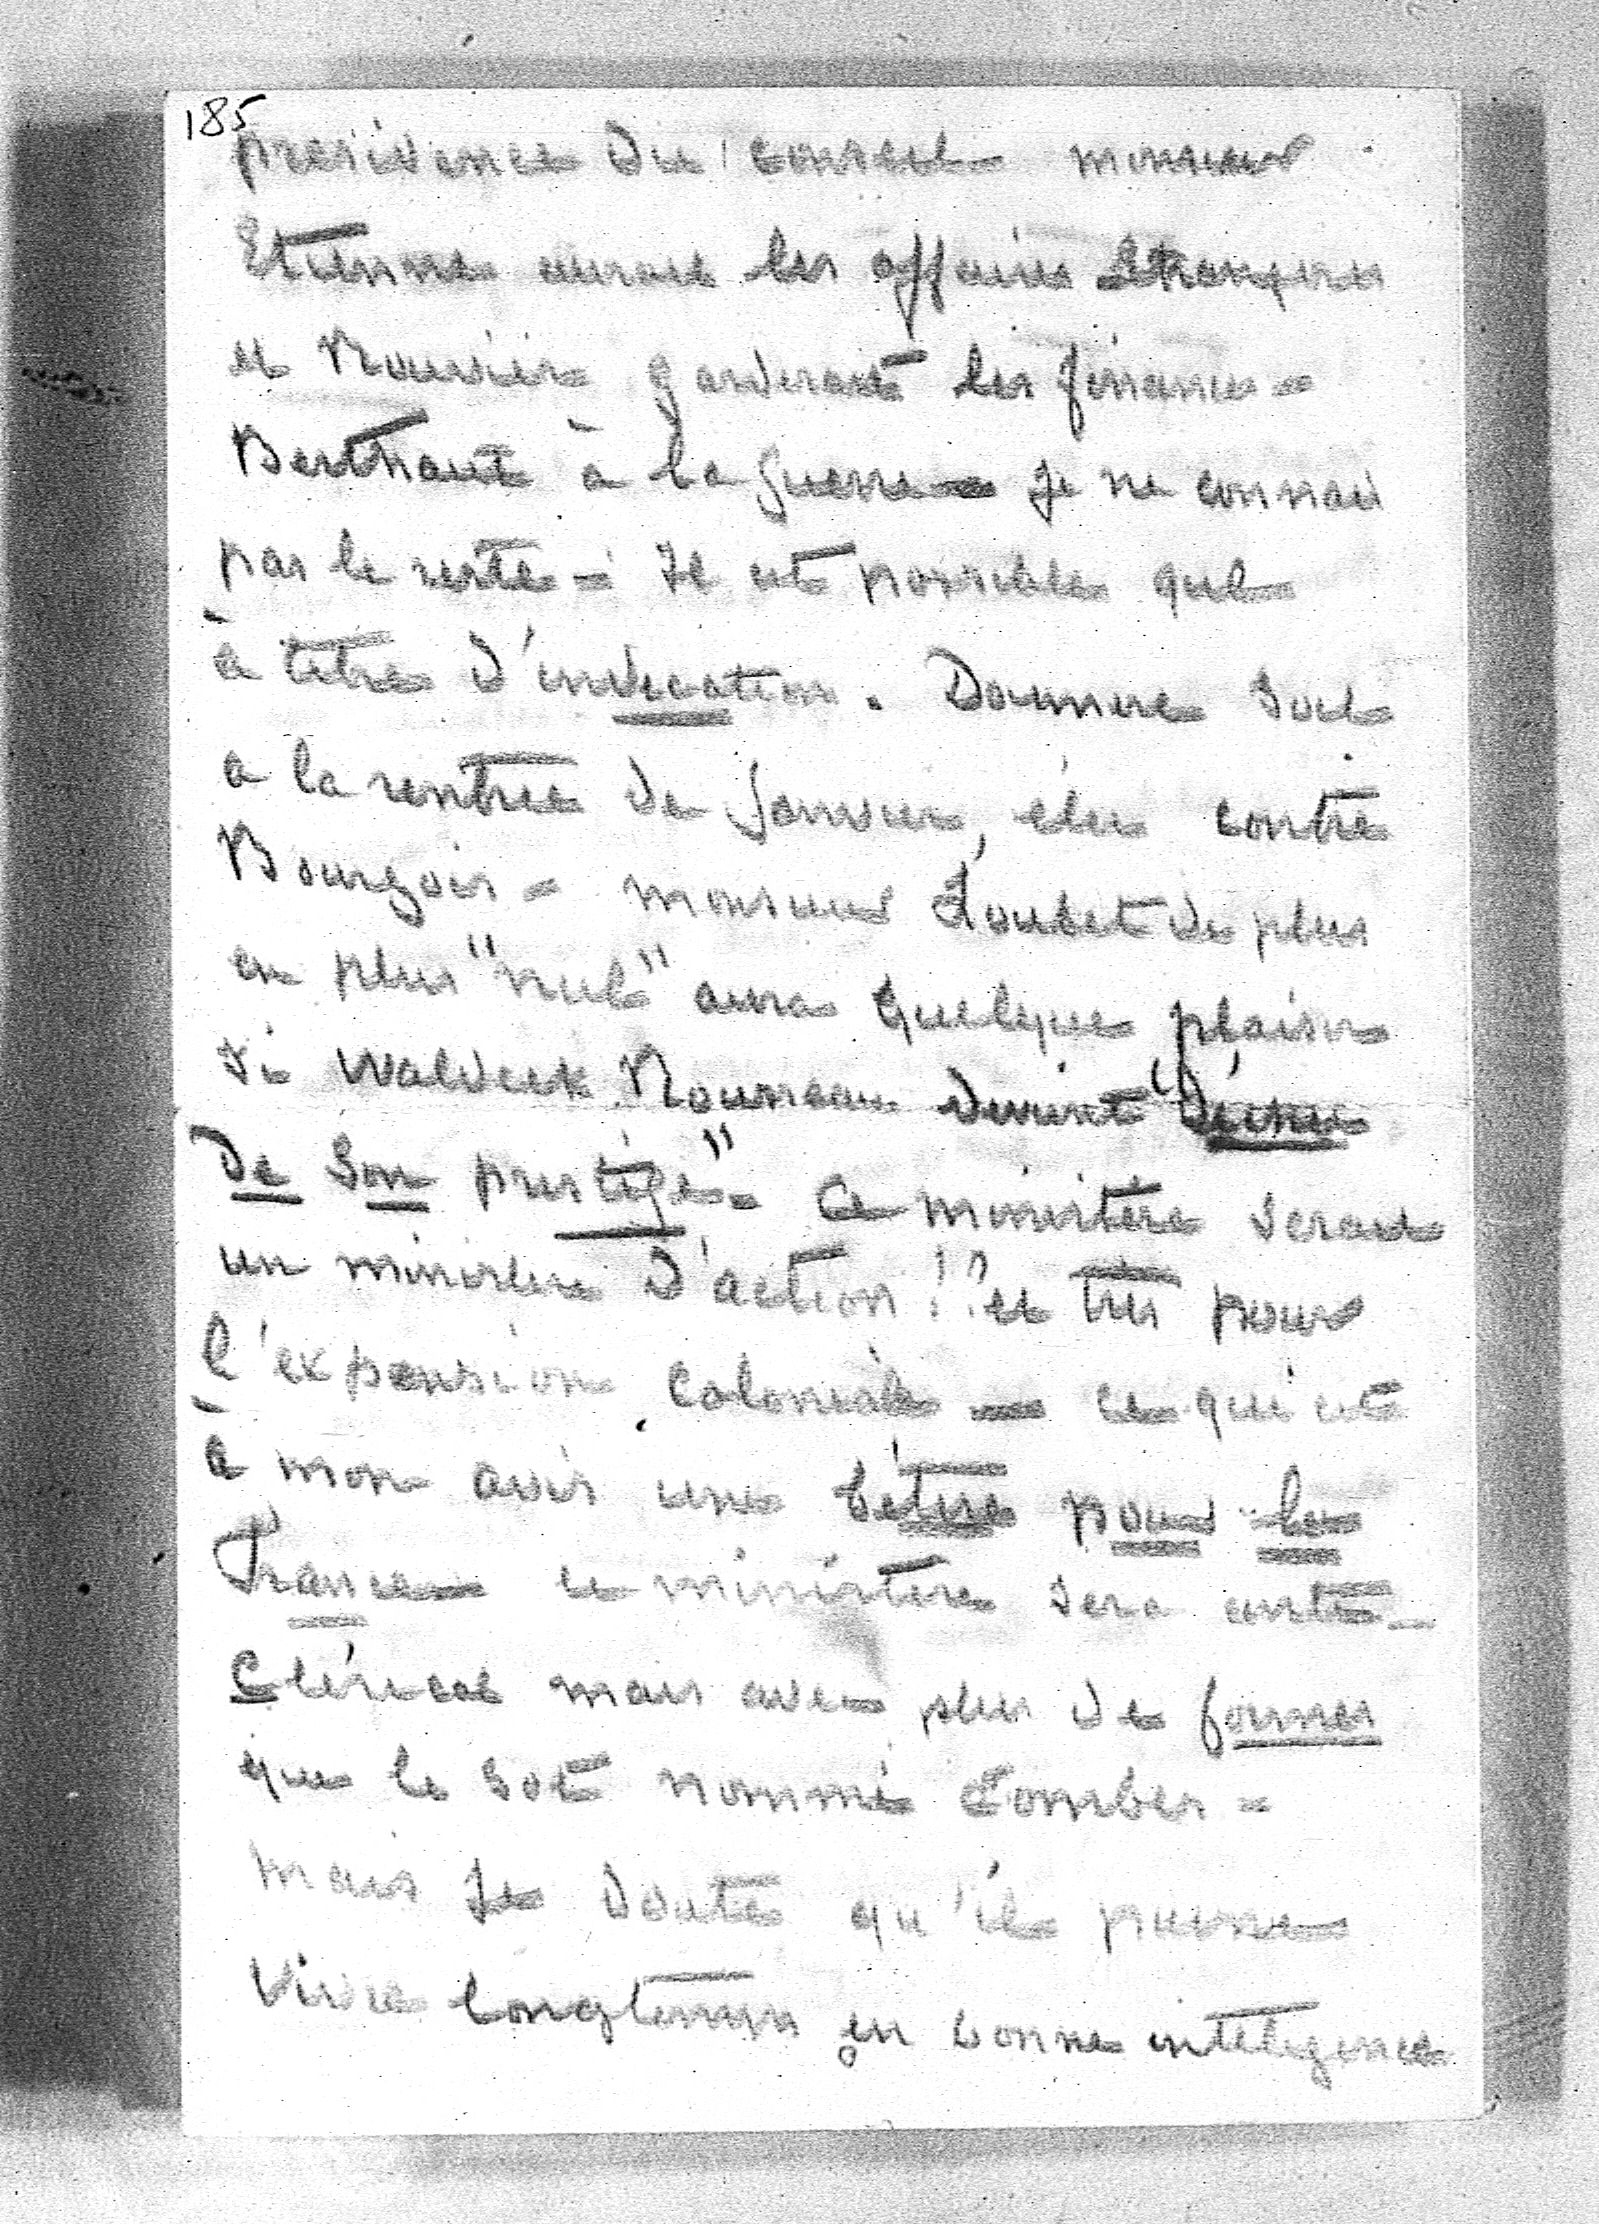 185
présidence du conseil monsieur
Etienne aurait les affaires étrangères
et Rouvier garderait les finances =
Berthaut à la guerre = Je ne connai
pas le reste = Il est possible que
à titre d'indication. Doumer soit
a la rentrée de Janvier, élu contre
Bourgois = monsieur Loubet de plus
en plus "nul" aura quelque plaisir
si Waldeck Rousseau devient "déchu
de son prestige" = Ce ministère serait
un ministère d'action !? et très pour
l'expansion coloniale = ce qui est
à mon avis une bêtise pour la
France = le ministère sera anti-
clérical mais avec plus de formes
que le sot nommé Combes =
mais Je doute qu'il puisse
Vivre longtemps en bonne inteligence